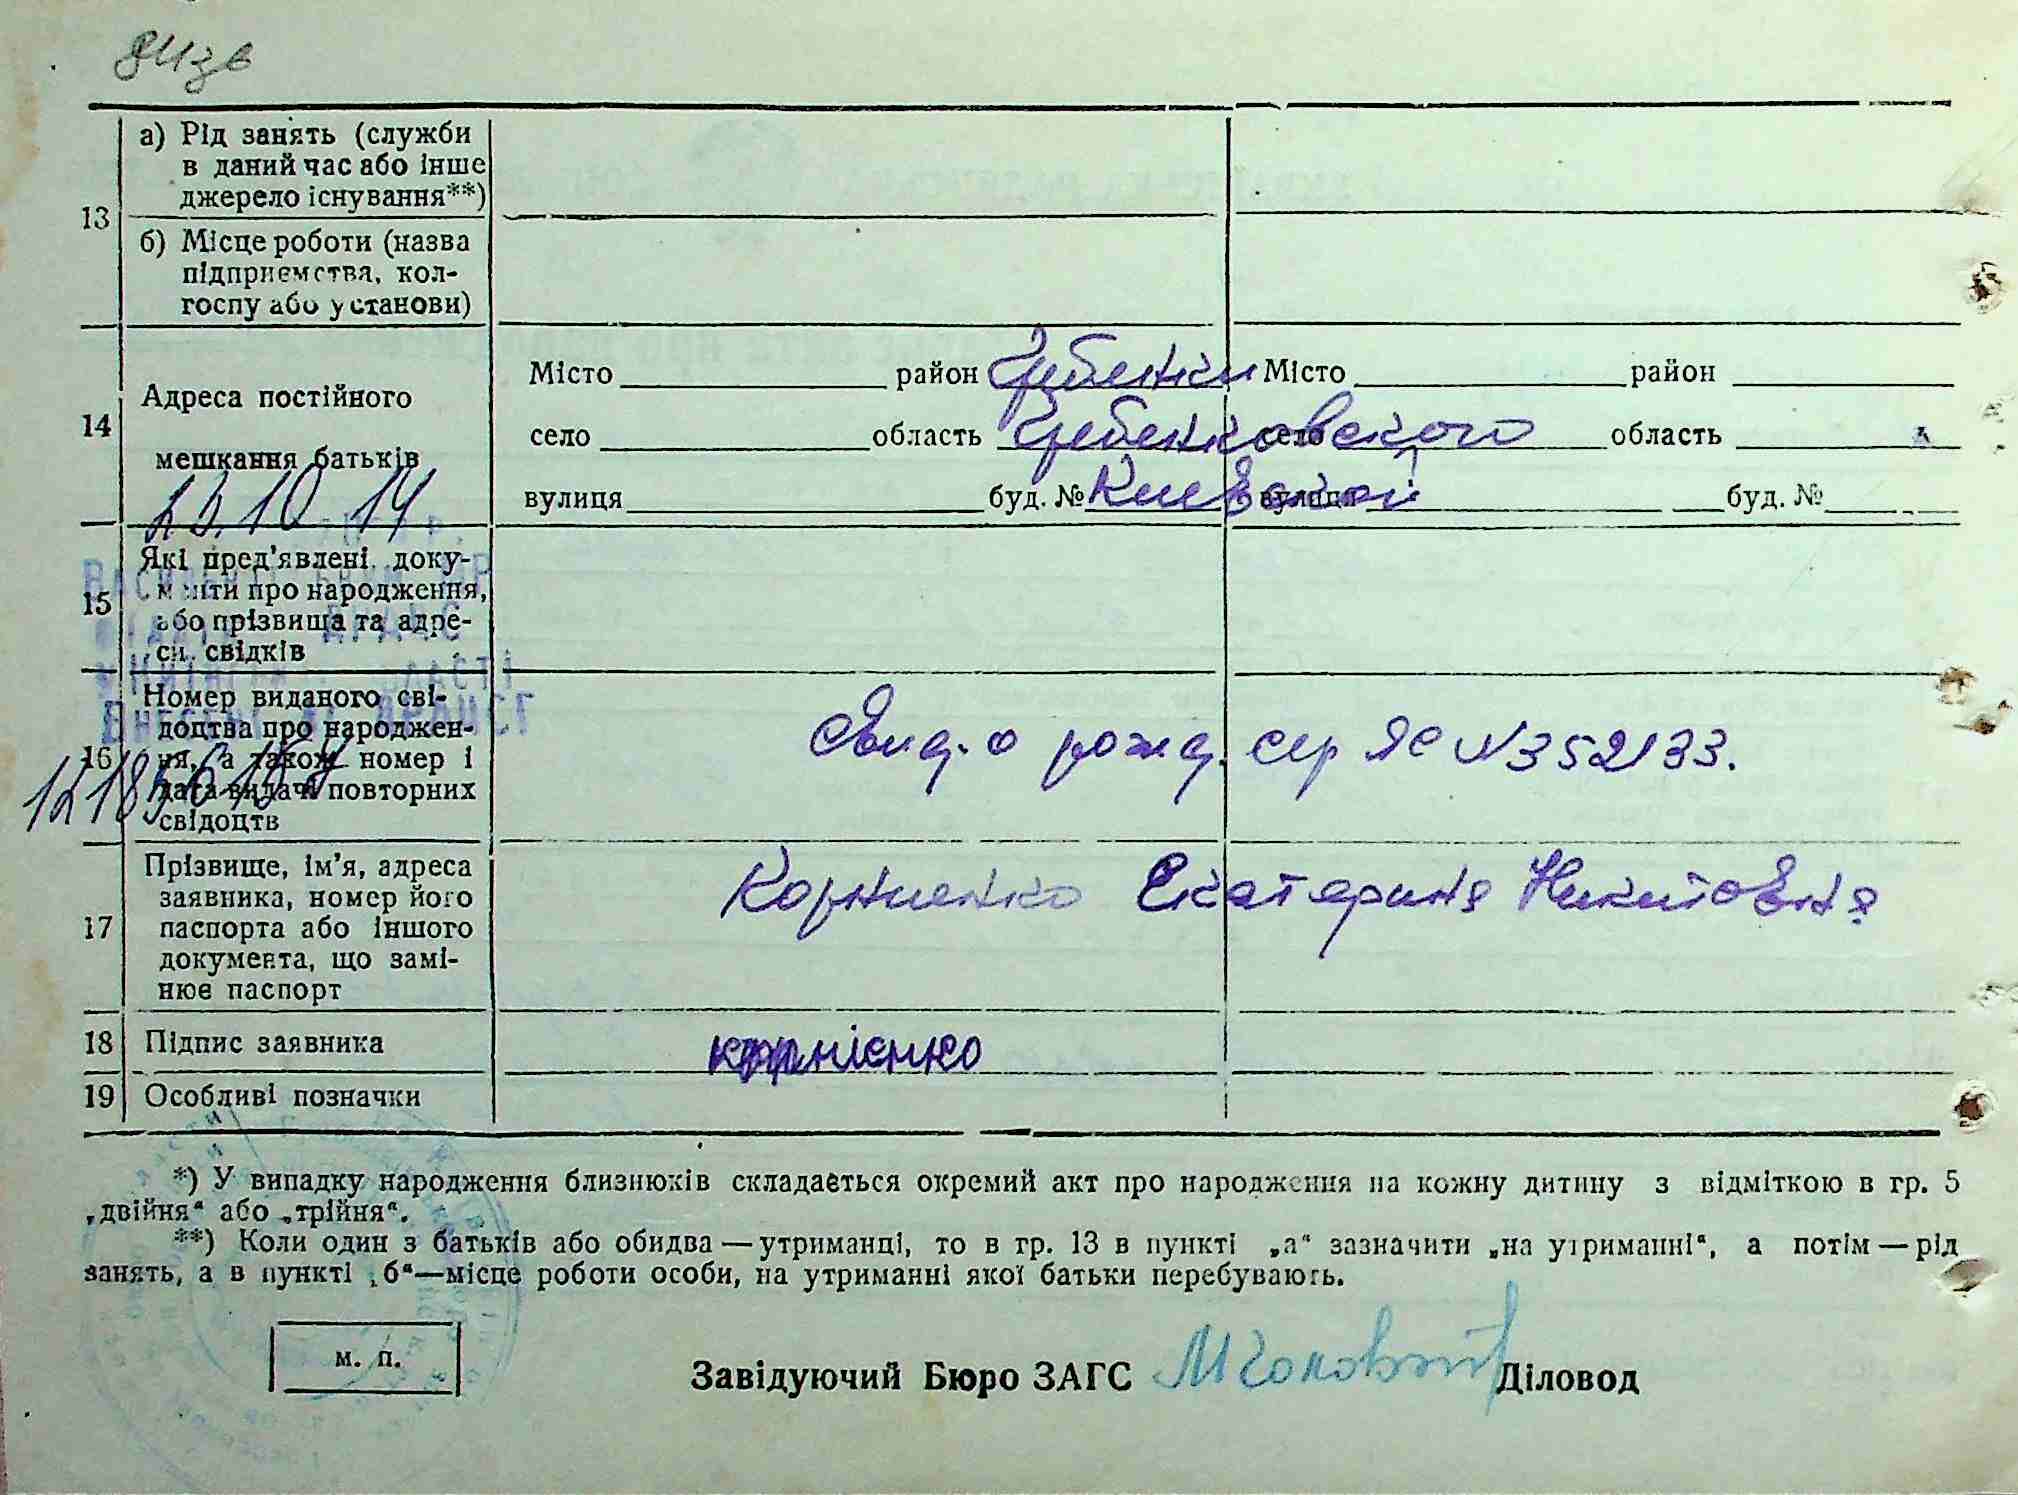 13 а) Рід занять (служби
в даний час або інше
джерело існування**)
б) Місце роботи (назва
підприємства, кол-
госпу або установи)
14 Адреса постійного
мешкання батьків
Місто район Гребенки Місто район
село область Гребенковского село область
вулиця буд. № Киевской вулиця буд. №
23.10.14
15 Які пред'явлені доку-
менти про народження,
або прізвища та адре-
си свідків
16 Номер виданого сві-
доцтва про народжен-
ня, а також номер і
дата видачі повторних
свідоцтв
Свид. о рожд. сер ЯС №352133.
17 Прізвище, ім'я, адреса
заявника, номер його
паспорта або іншого
документа, що замі-
нює паспорт
Корниенко Екатерина Никитовна
18 Підпис заявника корнієнко
19 Особливі позначки
*) У випадку народження близнюків складається окремий акт про народження на кожну дитину з відміткою в гр. 5
„двійня“ або „трійня“.
**) Коли один з батьків або обидва — утриманці, то в гр. 13 в пункті „а“ зазначити „на утриманні“, а потім — рід
занять, а в пункті „б“—місце роботи особи, на утриманні якої батьки перебувають.
м. п.
Завідуючий Бюро ЗАГС Діловод